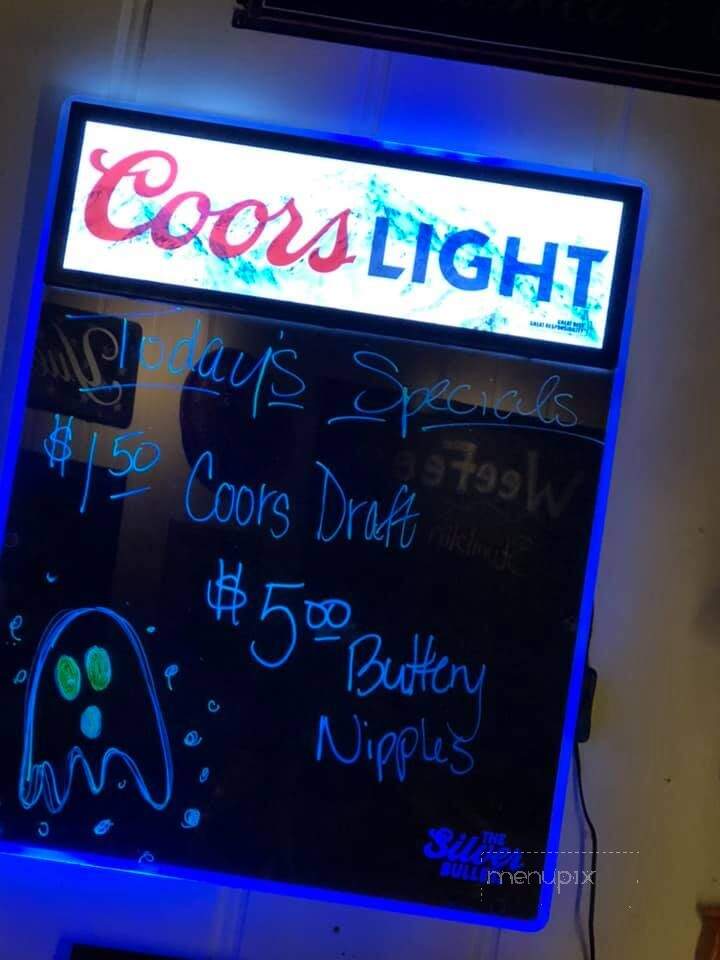 Coors LIGHT
GREAT BEER
GREAT RESPONSIBILITY
Today's Specials
$1.50 Coors Draft
$5.00
Buttery
Nipples
THE
Silver
BULLET
menupix